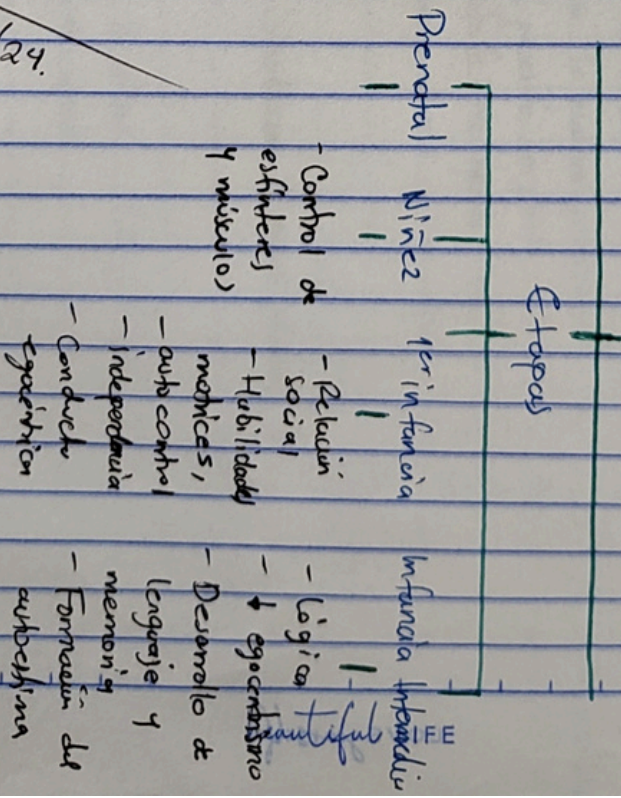 /24.
Etapas
Prenatal
Niñez
- Control de
esfínteres
y músculos
1er infancia
- Relación
social
- Habilidades
motrices,
- autocontrol
- independencia
- Conducta
egocéntrica
Infancia Intermedia
- Lógica
- ↓ egocentrismo
- Desarrollo de
lenguaje y
memoria
- Formación del
autoestima
beautiful LIFE